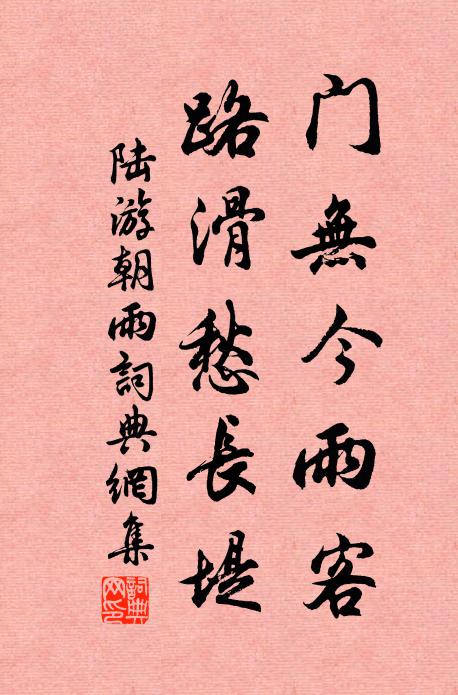 门無今雨客
路滑愁長堤
陆游朝雨詞典網集
詞典网印